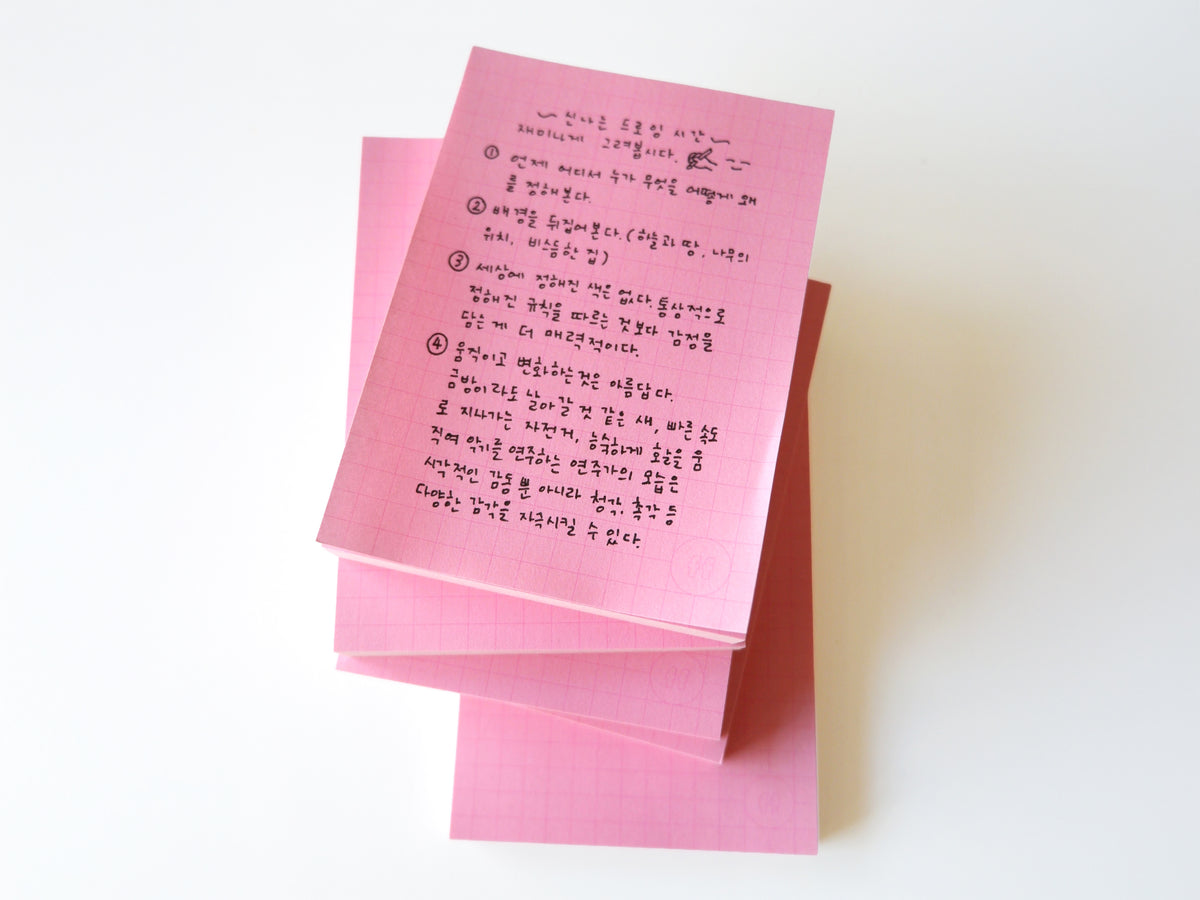 ~ 신나는 드로잉 시간 ~
재미나게 그려봅시다.
① 언제 어디서 누가 무엇을 어떻게 왜
를 정해본다.
② 배경을 뒤집어본다. (하늘과 땅, 나무의
위치, 비스듬한 집)
③ 세상에 정해진 색은 없다. 통상적으로
정해진 규칙을 따르는 것보다 감정을
담는 게 더 매력적이다.
④ 움직이고 변화하는 것은 아름답다.
금방이라도 날아갈 것 같은 새, 빠른 속도
로 지나가는 자전거, 능숙하게 활을 움
직여 악기를 연주하는 연주가의 모습은
시각적인 감동 뿐 아니라 청각, 촉각 등
다양한 감각을 자극시킬 수 있다.